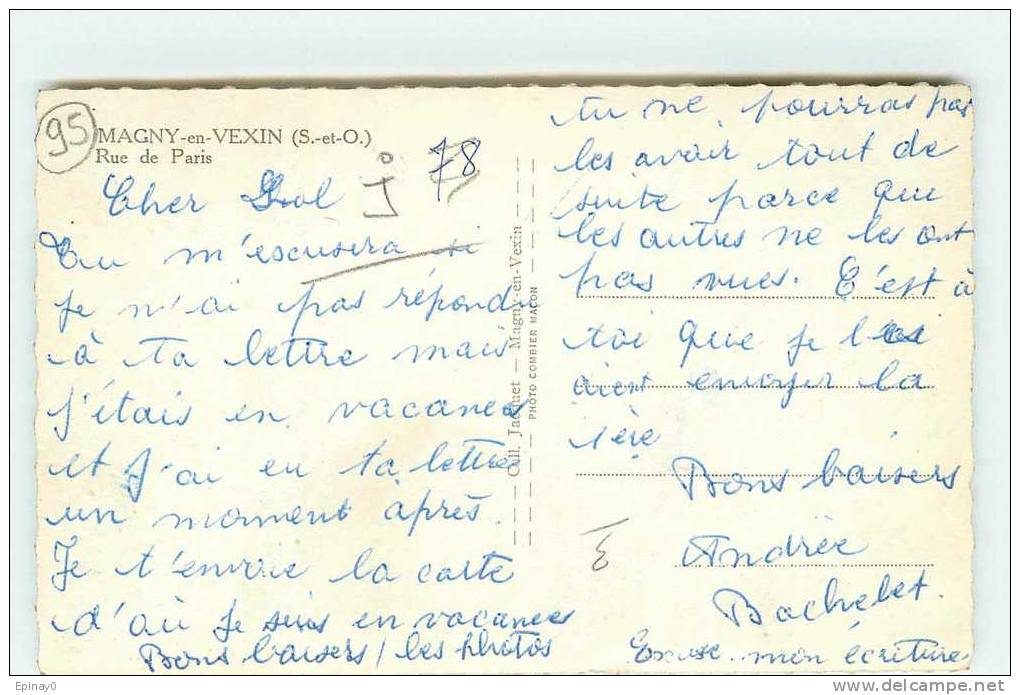 95
MAGNY-en-VEXIN (S.-et-O.)
Rue de Paris
78
Cher
Tu m'escusera si
je n'ai pas répondu
à ta lettre mais
j'étais en vacances
et j'ai eu ta lettre
un moment après.
Je t'envoie la carte
d'où je suis en vacances
Bons baisers / les photos
Coll. Jacquet — Magny-en-Vexin
PHOTO COMBIER MACON
tu ne pourras pas
les avoir tout de
suite parce que
les autres ne les ont
pas vues. C'est à
toi que je
aient envoyer la
1ère
Bons baisers
Andrée
Bachelet.
Excuse mon écriture
Epinay0
delcampe.net